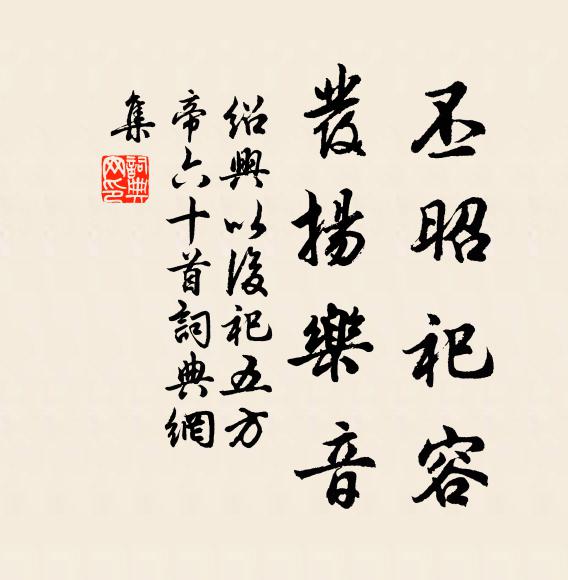 丕昭祀容
發揚樂音
紹興以後祀五方
帝六十首詞典網
集
詞典網印